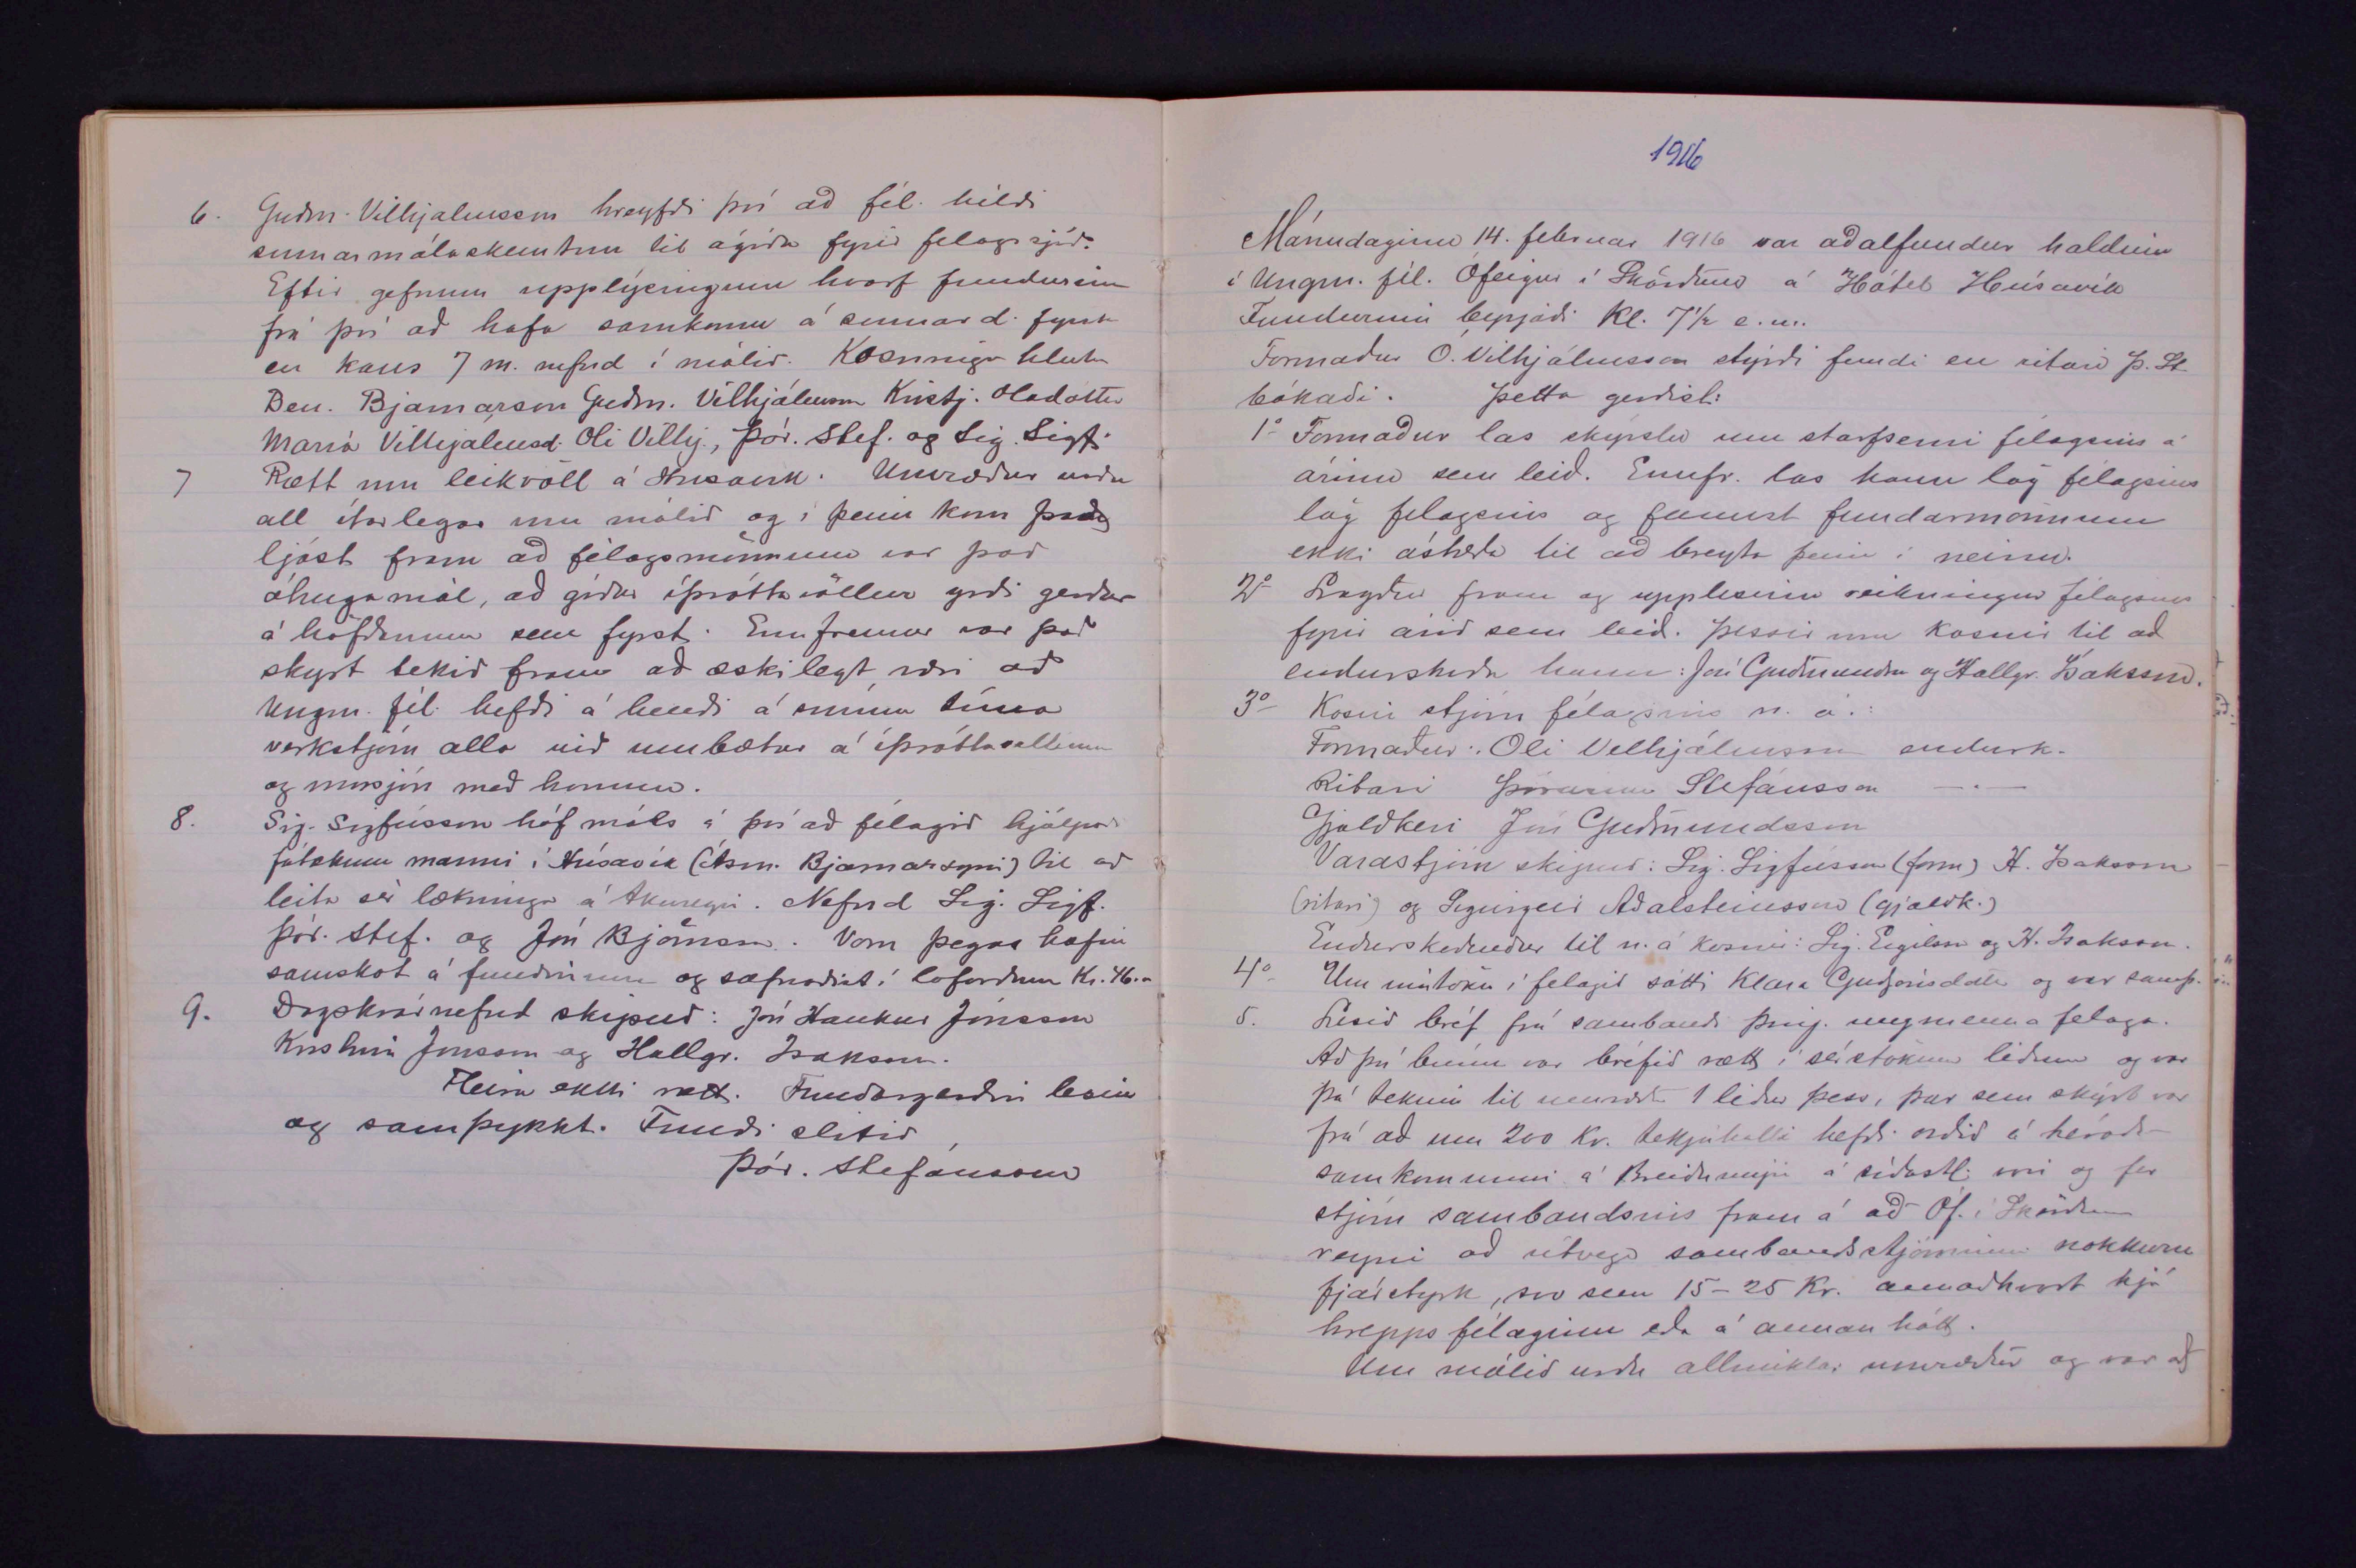 6. Guðm. Vilhjalmsson hreyfði því að fél. héldi
sumarmálaskemtun til ágóða fyrir felagssjóð.
Eftir gefnum upplýsingum hvarf fundurinn
frá því að hafa samkomu á sumard. fyrsta
en kaus 7 m. nefnd í málið. Kosningu hlutu
Ben. Bjarnarson Guðm. Vilhjálmsson Kristj. Oladóttir
María Vilhjalmsd. Oli Vilhj., Þór. Stef. og Sig. Sigf.
7 Rætt um leikvöll á Húsavík. Umræður urðu
all ítarlegar um málið og í þeim kom það
ljóst fram að félagsmönnum var það
áhugamál, að góður íþróttavöllur yrði gerður
á höfðanum sem fyrst. Ennfremur var það
skyrt tekið fram að æskilegt væri að
Ungm. fél. hefði á hendi á sínum tíma
verkstjórn alla við umbætur á íþróttavellinum
og umsjón með honum.
8. Sig. Sigfússon hóf máls á því að félagið hjálpaði
fátækum manni í Húsavík (Ásm. Bjarnarsyni) til að
leita sér lækninga á Akureyri. Nefnd Sig. Sigf.
Þór. Stef. og Jón Björnsson. Vorn þegar hafin
samskot á fundinum og safnaðist í loforðum Kr. 46.
9. Dagskrárnefnd skipuð: Jón Haukur Jónsson
Kristinn Jónsson og Hallgr. Isaksson.
Fleira ekki rætt. Fundargerðin lesin
og samþykkt. Fundi slitið
Þór. Stefánsson
1916
Mánudaginn 14. februar 1916 var aðalfundur haldinn
í Ungm. fél. Ófeigur í Skörðum á Hótel Húsavík
Fundurinn byrjaði Kl. 7 1/2 e.m.
Formaður Ó. Vilhjálmsson stýrði fundi en ritari Þ. St.
bókaði. Þetta gerðist:
1º Formaður las skýrslu um starfsemi félagsins á
árinu sem leið. Ennfr. las hann lög félagsins
lög felagsins og fannst fundarmönnum
ekki ástæða til að breyta þeim í neinu.
2º Lagður fram og upplesinn reikningur félagsins
fyrir árið sem leið. Þessir voru kosnir til að
endurskoða hann: Jón Guðmundss og Hallgr. Ísaksson.
3º Kosin stjórn félagsins n. á.:
Formaður: Oli Vilhjálmsson endurk.
Ritari Þórarinn Stefánsson —"—
Gjaldkeri Jón Guðmundsson
Varastjórn skipuð: Sig. Sigfússon (form) H. Isaksson
(ritari) og Sigurgeir Aðalsteinsson (gjaldk.)
Endurskoðendur til n. á kosnir: Sig. Egilsson og H. Isakson.
4º Um inntöku í felagið sótti Klara Guðjónsdóttir og var samþ.
5. Lesið bréf frá sambandi Þing. ungmenna felaga.
Að því búnu var bréfið rætt í sérstökum liðum og var
þá tekinn til umræðu 1 liður þess, þar sem skýrt var
frá að um 200 Kr. tekjuhalli hefði orðið á héraðs-
samkomunni á Breiðumýri á síðastl. vori og fer
stjórn sambandsins fram á að Óf. í Skörðum
reyni að útvega sambandsstjórninni nokkurn
fjárstyrk, svo sem 15-25 Kr. annaðhvort hjá
hreppsfélaginu eða á annan hátt.
Um málið urðu allmiklar umræður og var að